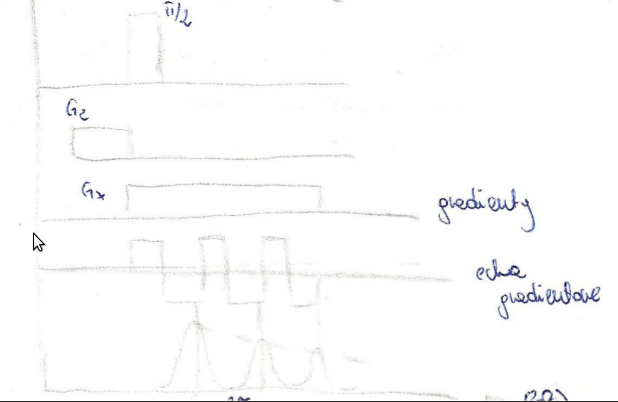 π/2
Gz
Gx
gradienty
echa
gradientowe